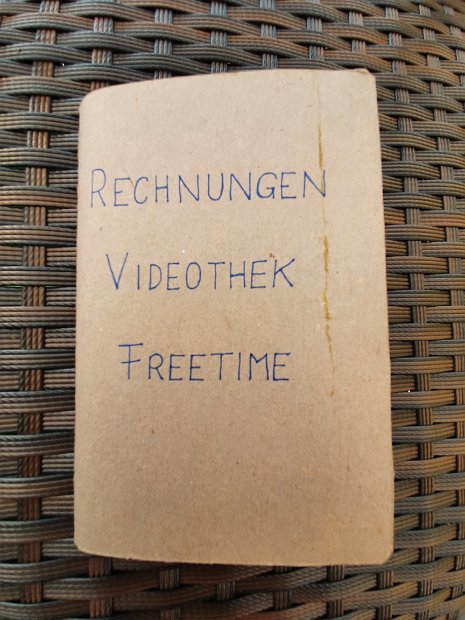 RECHNUNGEN
VIDEOTHEK
FREETIME